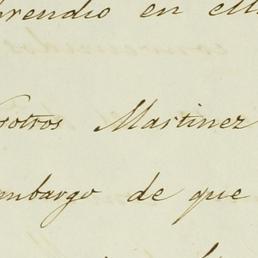 prendio en ell
sotros Martinez
ambargo de que